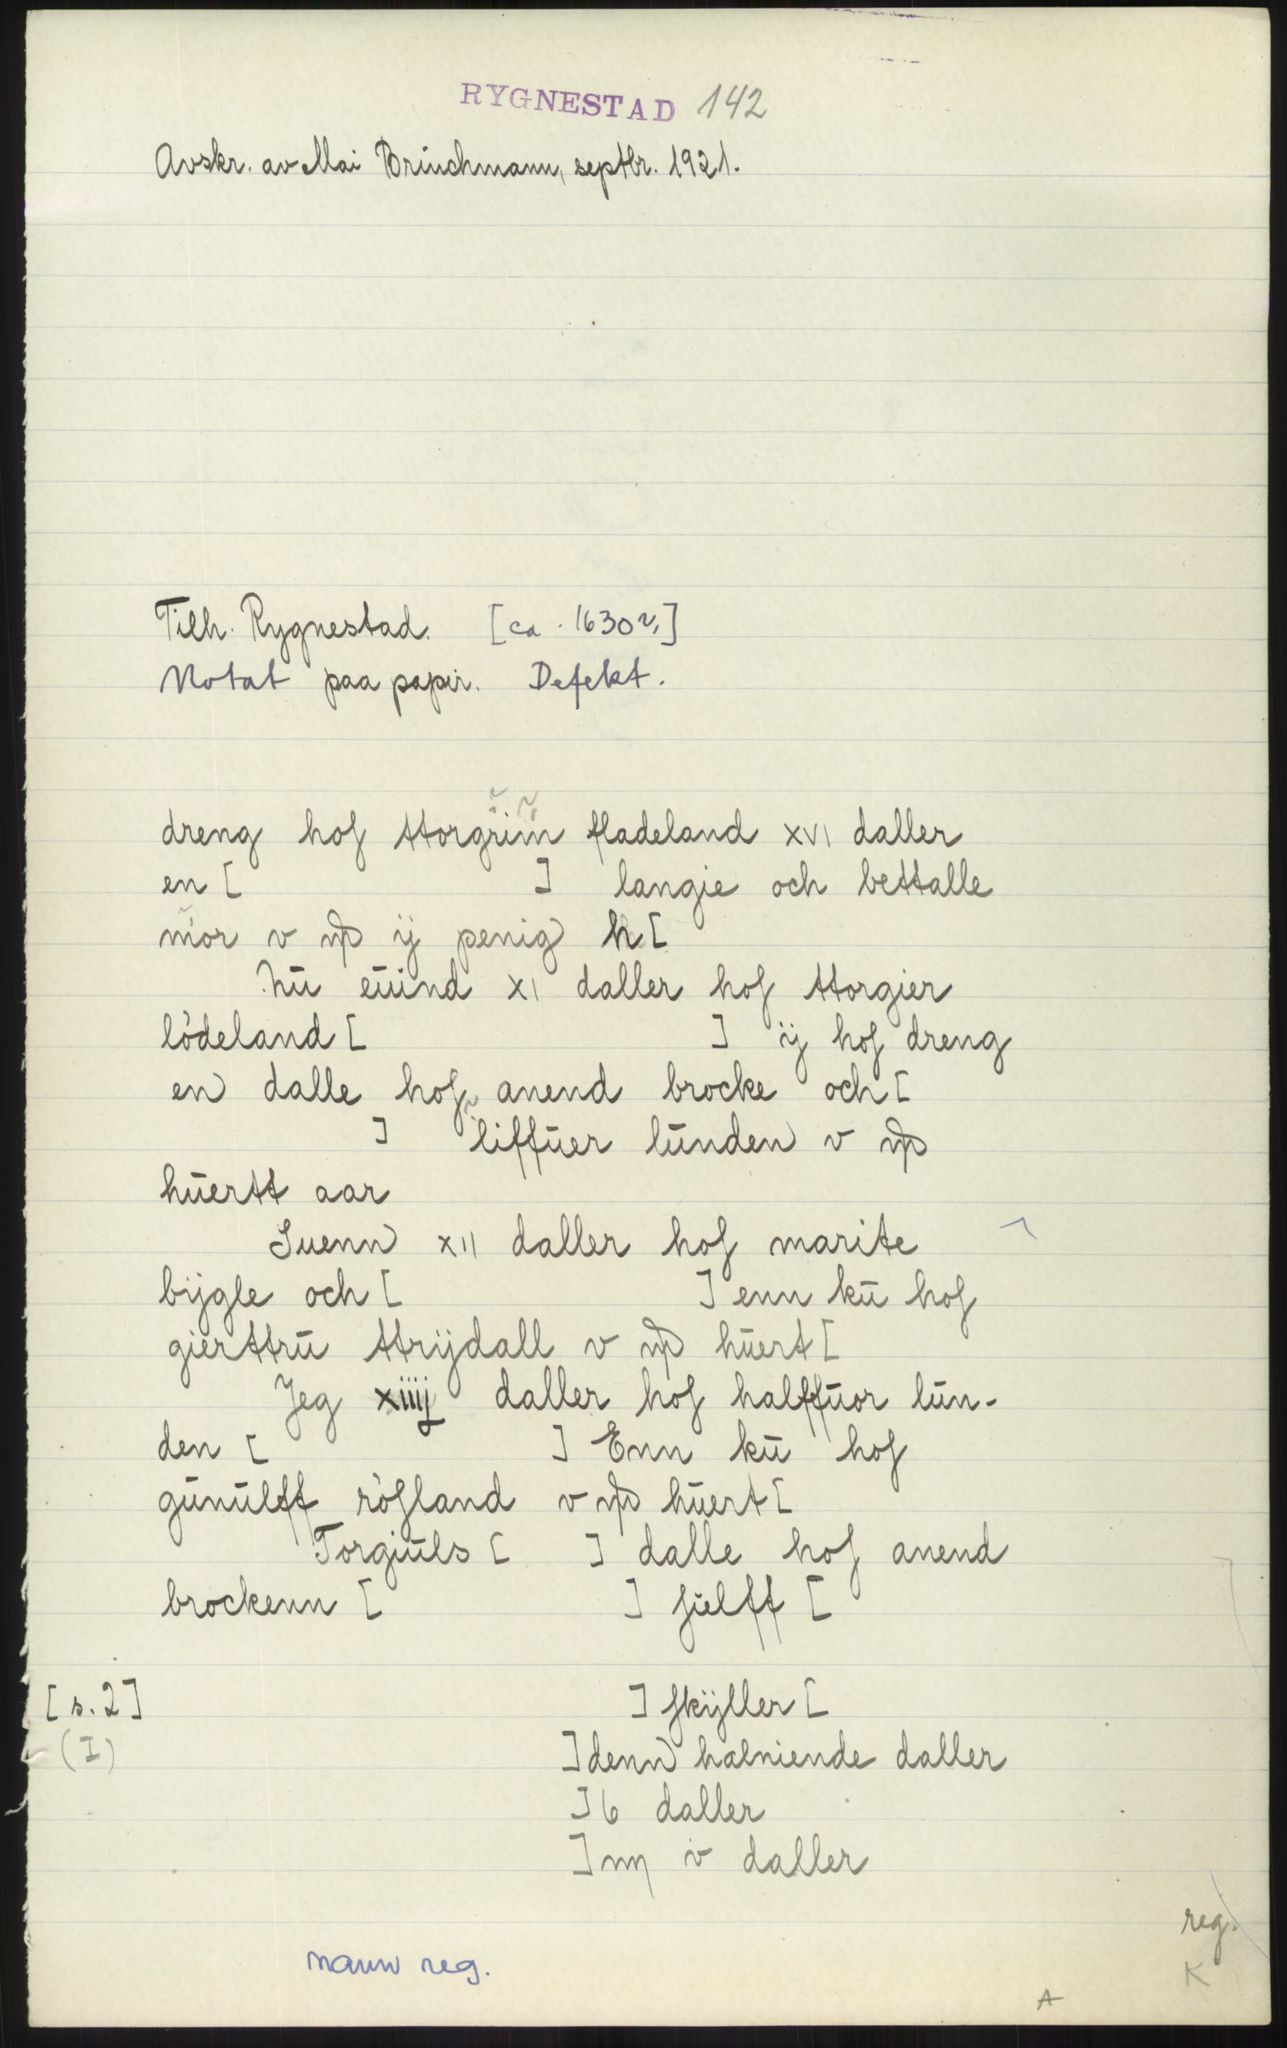 RYGNESTAD 142
Avskr. av Mai Brüchmann, septbr. 1921.
Tilh. Rygnestad. [ca. 1630?]
Notat paa papir. Defekt.
dreng hoſ ttorgrim fladeland XVI daller
en [ ] langie och bettalle
mor v ɱ ij penig h [
hū eūind XI daller hoſ ttorgier
lödeland [ ] ij hoſ dreng
en dalle hoſ anend brocke och [
] liffūer lūnden v ɱ
hūertt aar
Suenn XII daller hoſ marite
bijgle och [ ] enn kū hoſ
gierttrū ttrijdall v ɱ hūert [
Jeg xiiij daller hoſ halffūor lūn-
den [ ] Enn kū hoſ
gūnūlff röſland v ɱ hūert [
Torgiūls [ ] dalle hoſ anend
brockenn [ ] ſielff [
[s. 2] ] ſkÿller [
(I) ] denn halniende daller
] 6 daller
] v daller
reg.
navn reg.
K
A